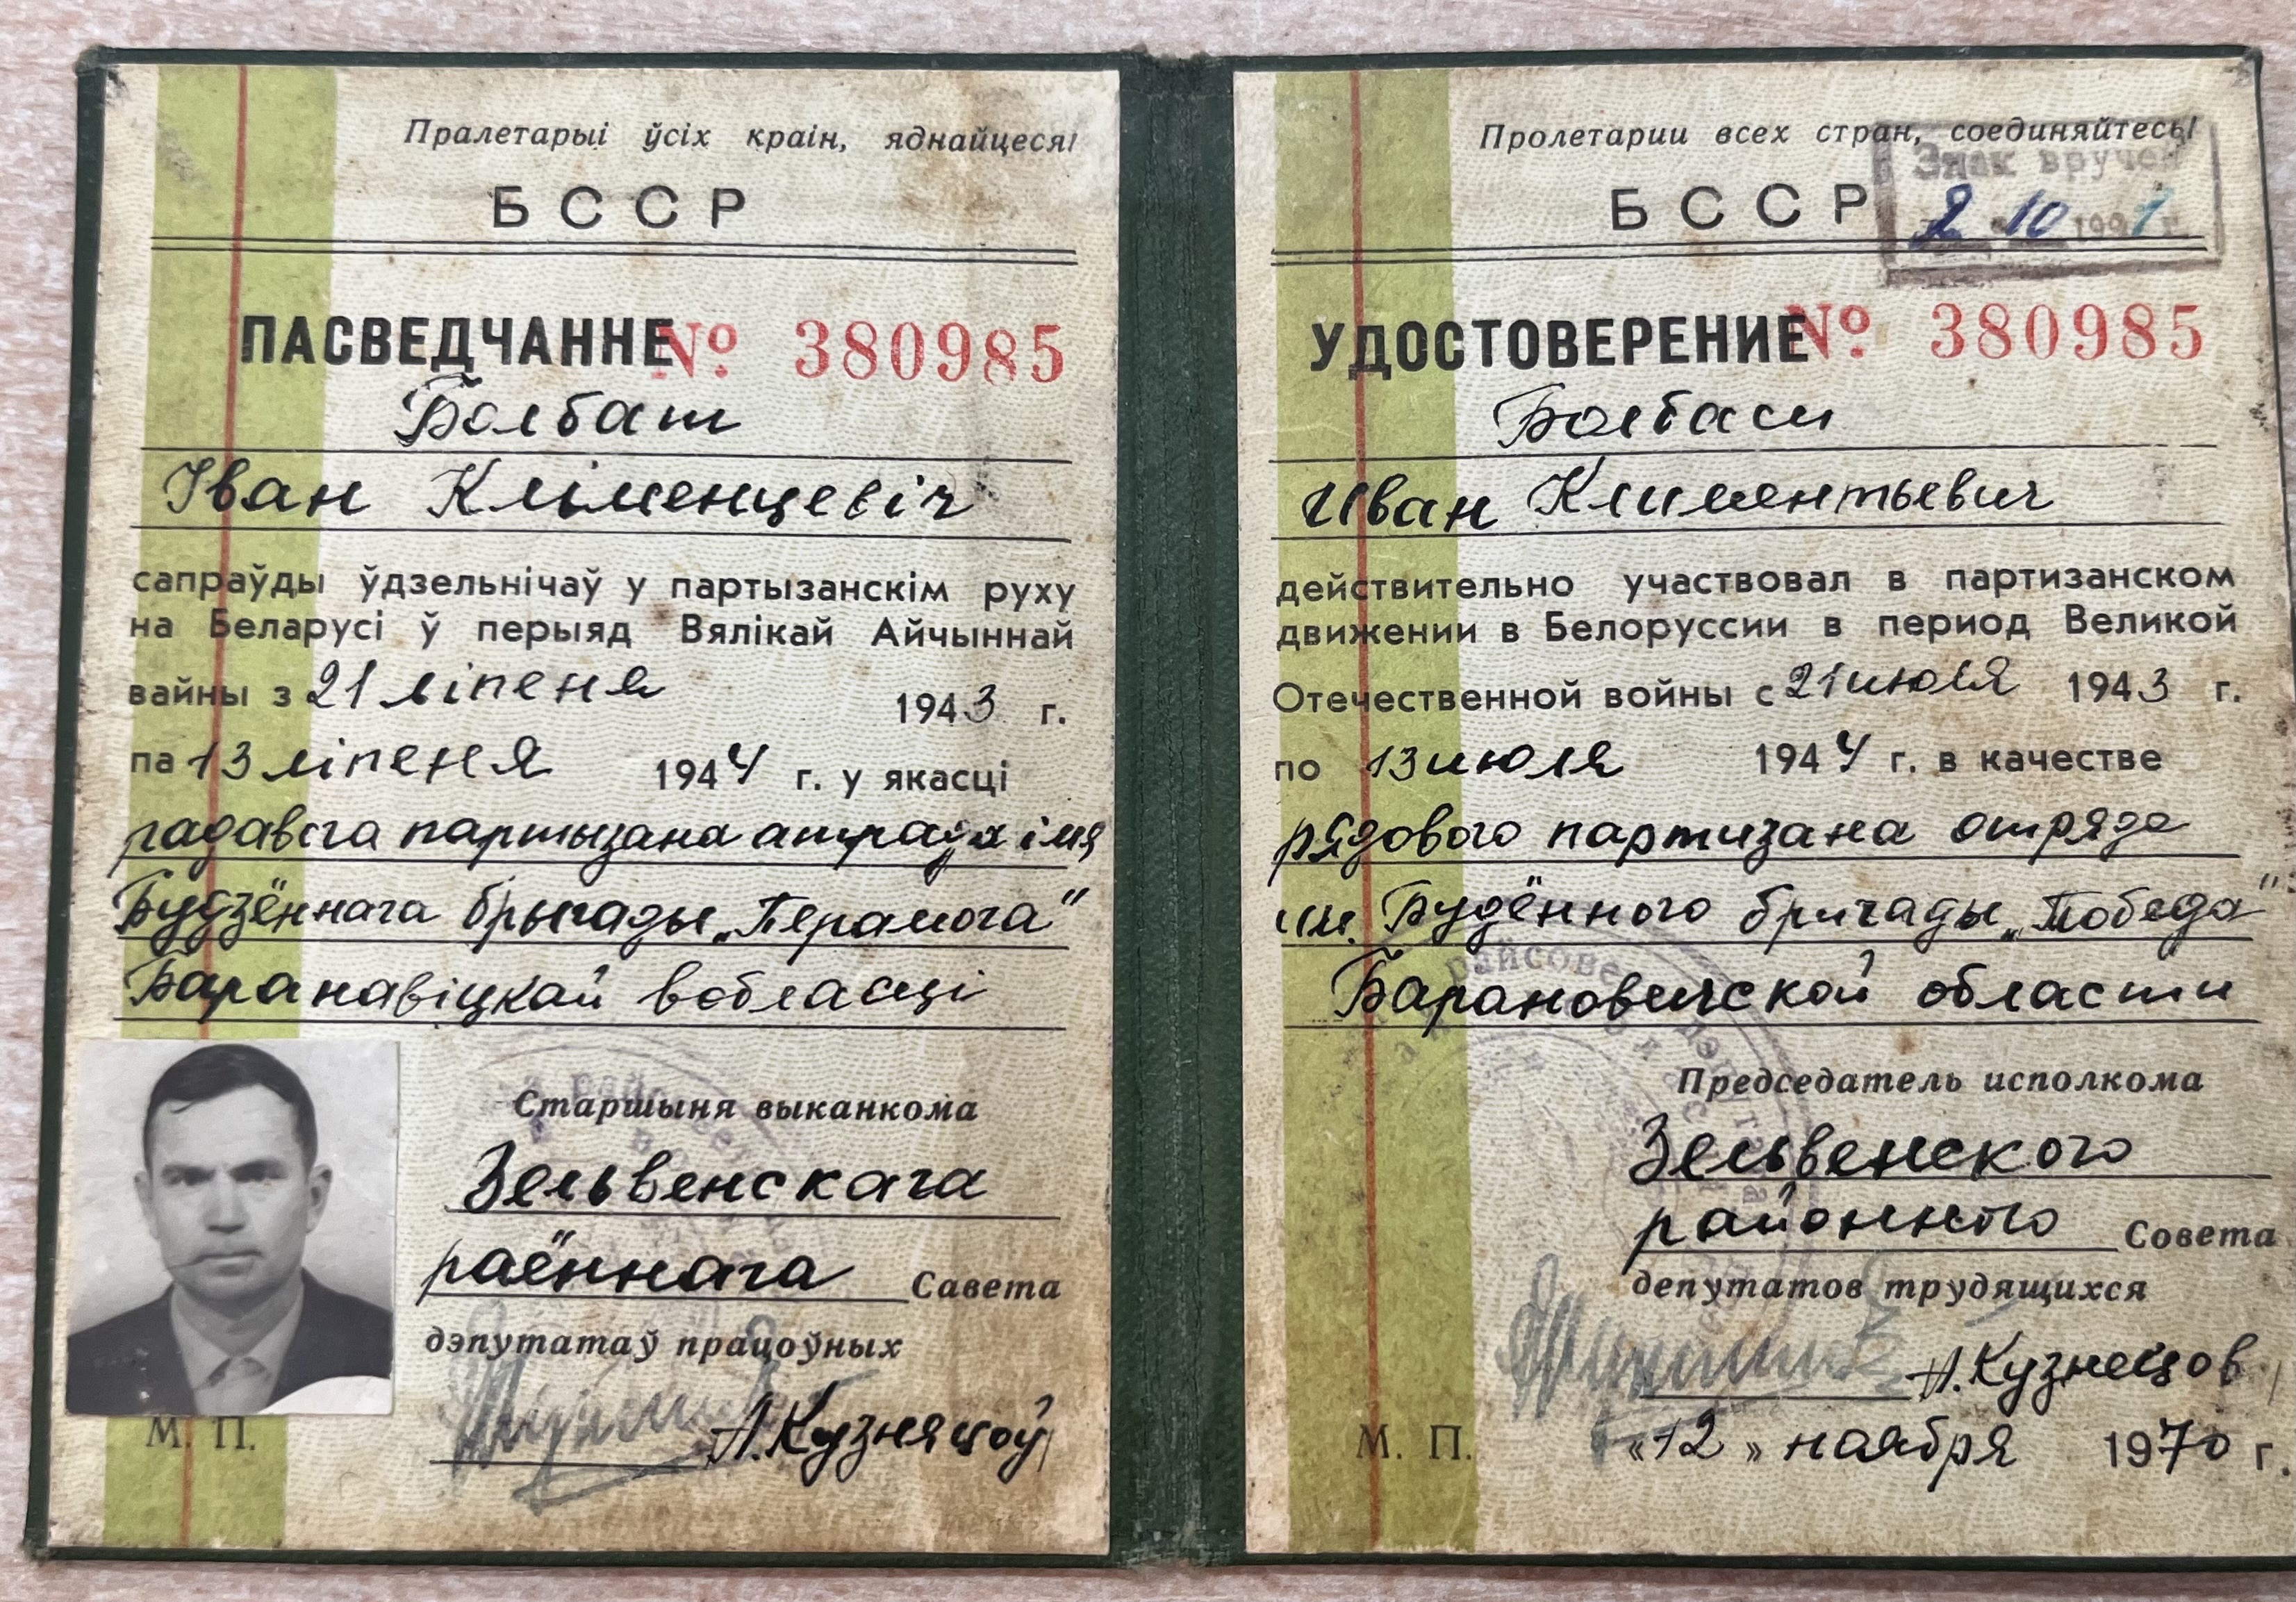 Пралетарыі ўсіх краін, яднайцеся!
БССР
ПАСВЕДЧАННЕ № 380985
Болбат
Іван Кліменцевіч
сапраўды ўдзельнічаў у партызанскім руху
на Беларусі ў перыяд Вялікай Айчыннай
вайны з 21 ліпеня 1943 г.
па 13 ліпеня 1944 г. у якасці
радавога партызана атрада імя
Будзённага брыгады „Перамога"
Баранавіцкай вобласці
Старшыня выканкома
Зельвенскага
раённага Савета
дэпутатаў працоўных
А. Кузняцоў
М. П.
Пролетарии всех стран, соединяйтесь!
Знак вручен
БССР
2 10 1991 г.
УДОСТОВЕРЕНИЕ № 380985
Болбат
Иван Климентьевич
действительно участвовал в партизанском
движении в Белоруссии в период Великой
Отечественной войны с 21 июля 1943 г.
по 13 июля 1944 г. в качестве
рядового партизана отряда
им. Будённого бригады „Победа"
Барановичской области
Председатель исполкома
Зельвенского
районного Совета
депутатов трудящихся
А. Кузнецов
М. П. «12» ноября 1970 г.